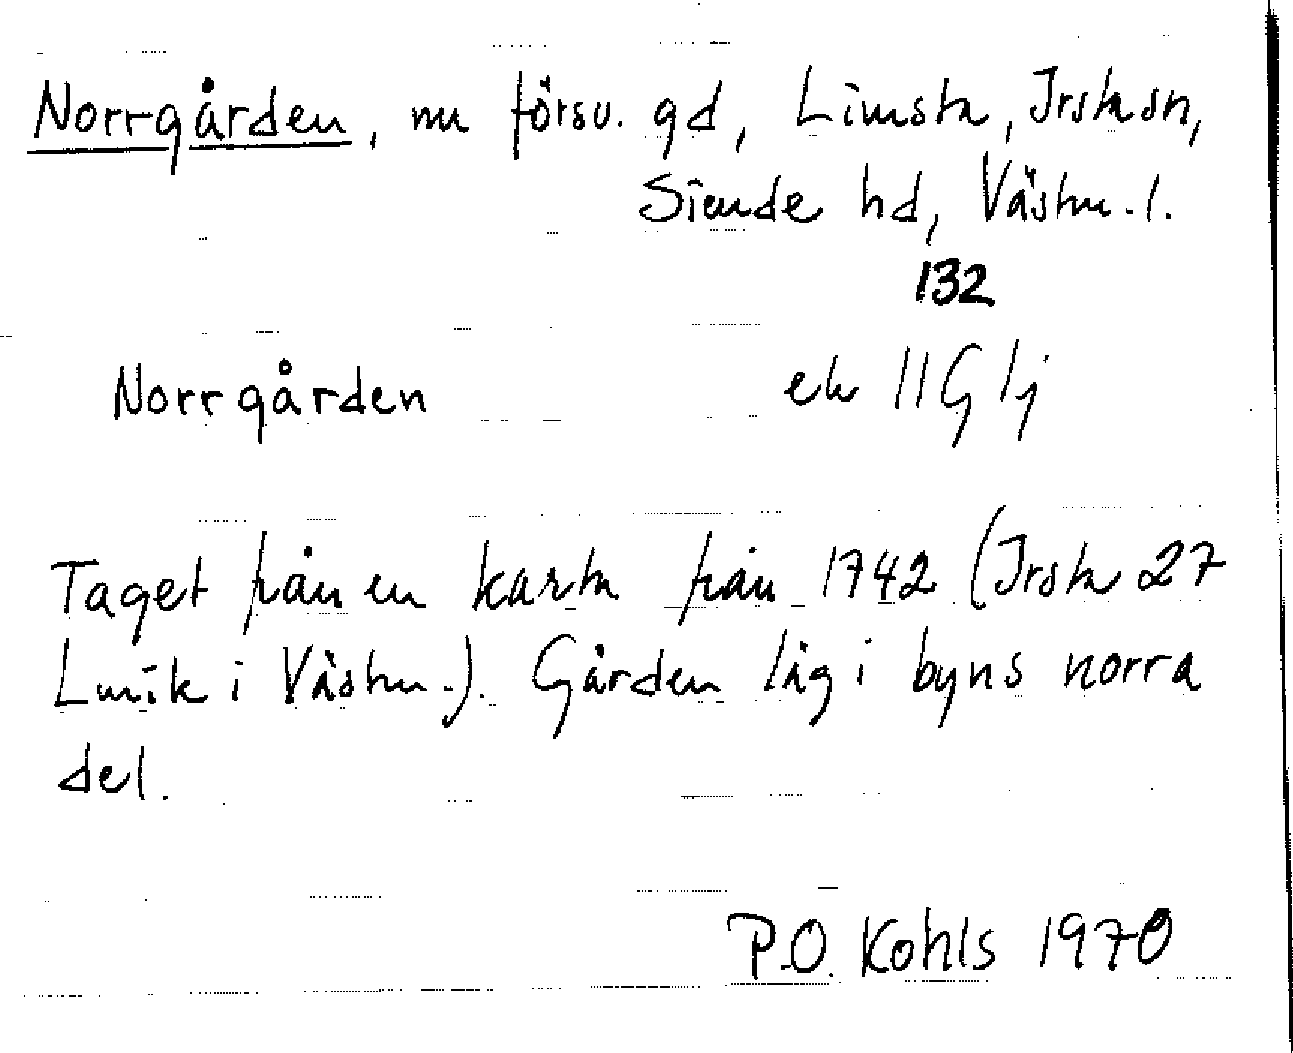 Norrgården, nu försv. gd, Limsta, Irsta sn,
Siende hd, Västm. l.
132
Norrgården ek 11G 1j
Taget från en karta från 1742 (Irsta 27
Lmtk i Västm.). Gården låg i byns norra
del.
P.O. Kohls 1970